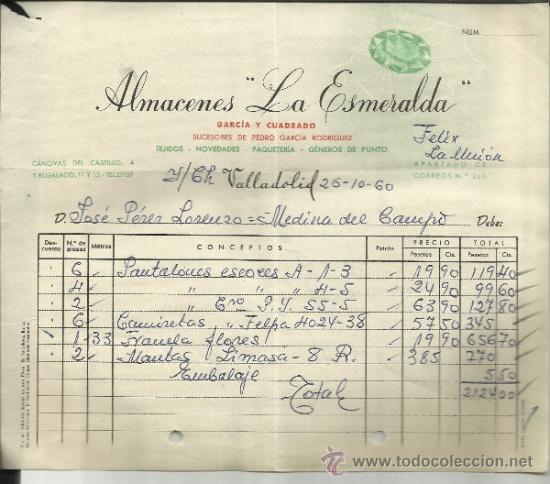 NUM.
Almacenes "La Esmeralda"
GARCÍA Y CUADRADO
SUCESORES DE PEDRO GARCÍA RODRIGUEZ
TEJIDOS - NOVEDADES - PAQUETERÍA - GÉNEROS DE PUNTO
Felix
La Unión
CÁNOVAS DEL CASTILLO, 4
Y REGALADO, 11 Y 13 - TEL. 21107
APARTADO DE
CORREOS N.º 260
Valladolid 26-10-60
D. José Pérez Lorenzo = Medina del Campo Debe:
Descuento N.º de piezas Metros CONCEPTOS Patrón PRECIO TOTAL
Pesetas Cts. Pesetas Cts.
6 Pantalones escores A-1-3 19 90 119 40
4 " " 4-5 24 90 99 60
2 " Cro P.Y. 55-5 63 90 127 80
6 Camisetas " Felpa 4024-38 57 50 345
1 33 Franela flores 19 90 656 70
2 Mantas Limasa-8 R. 385 770
Embalaje 5 50
Total 2124 00
www.todocoleccion.net